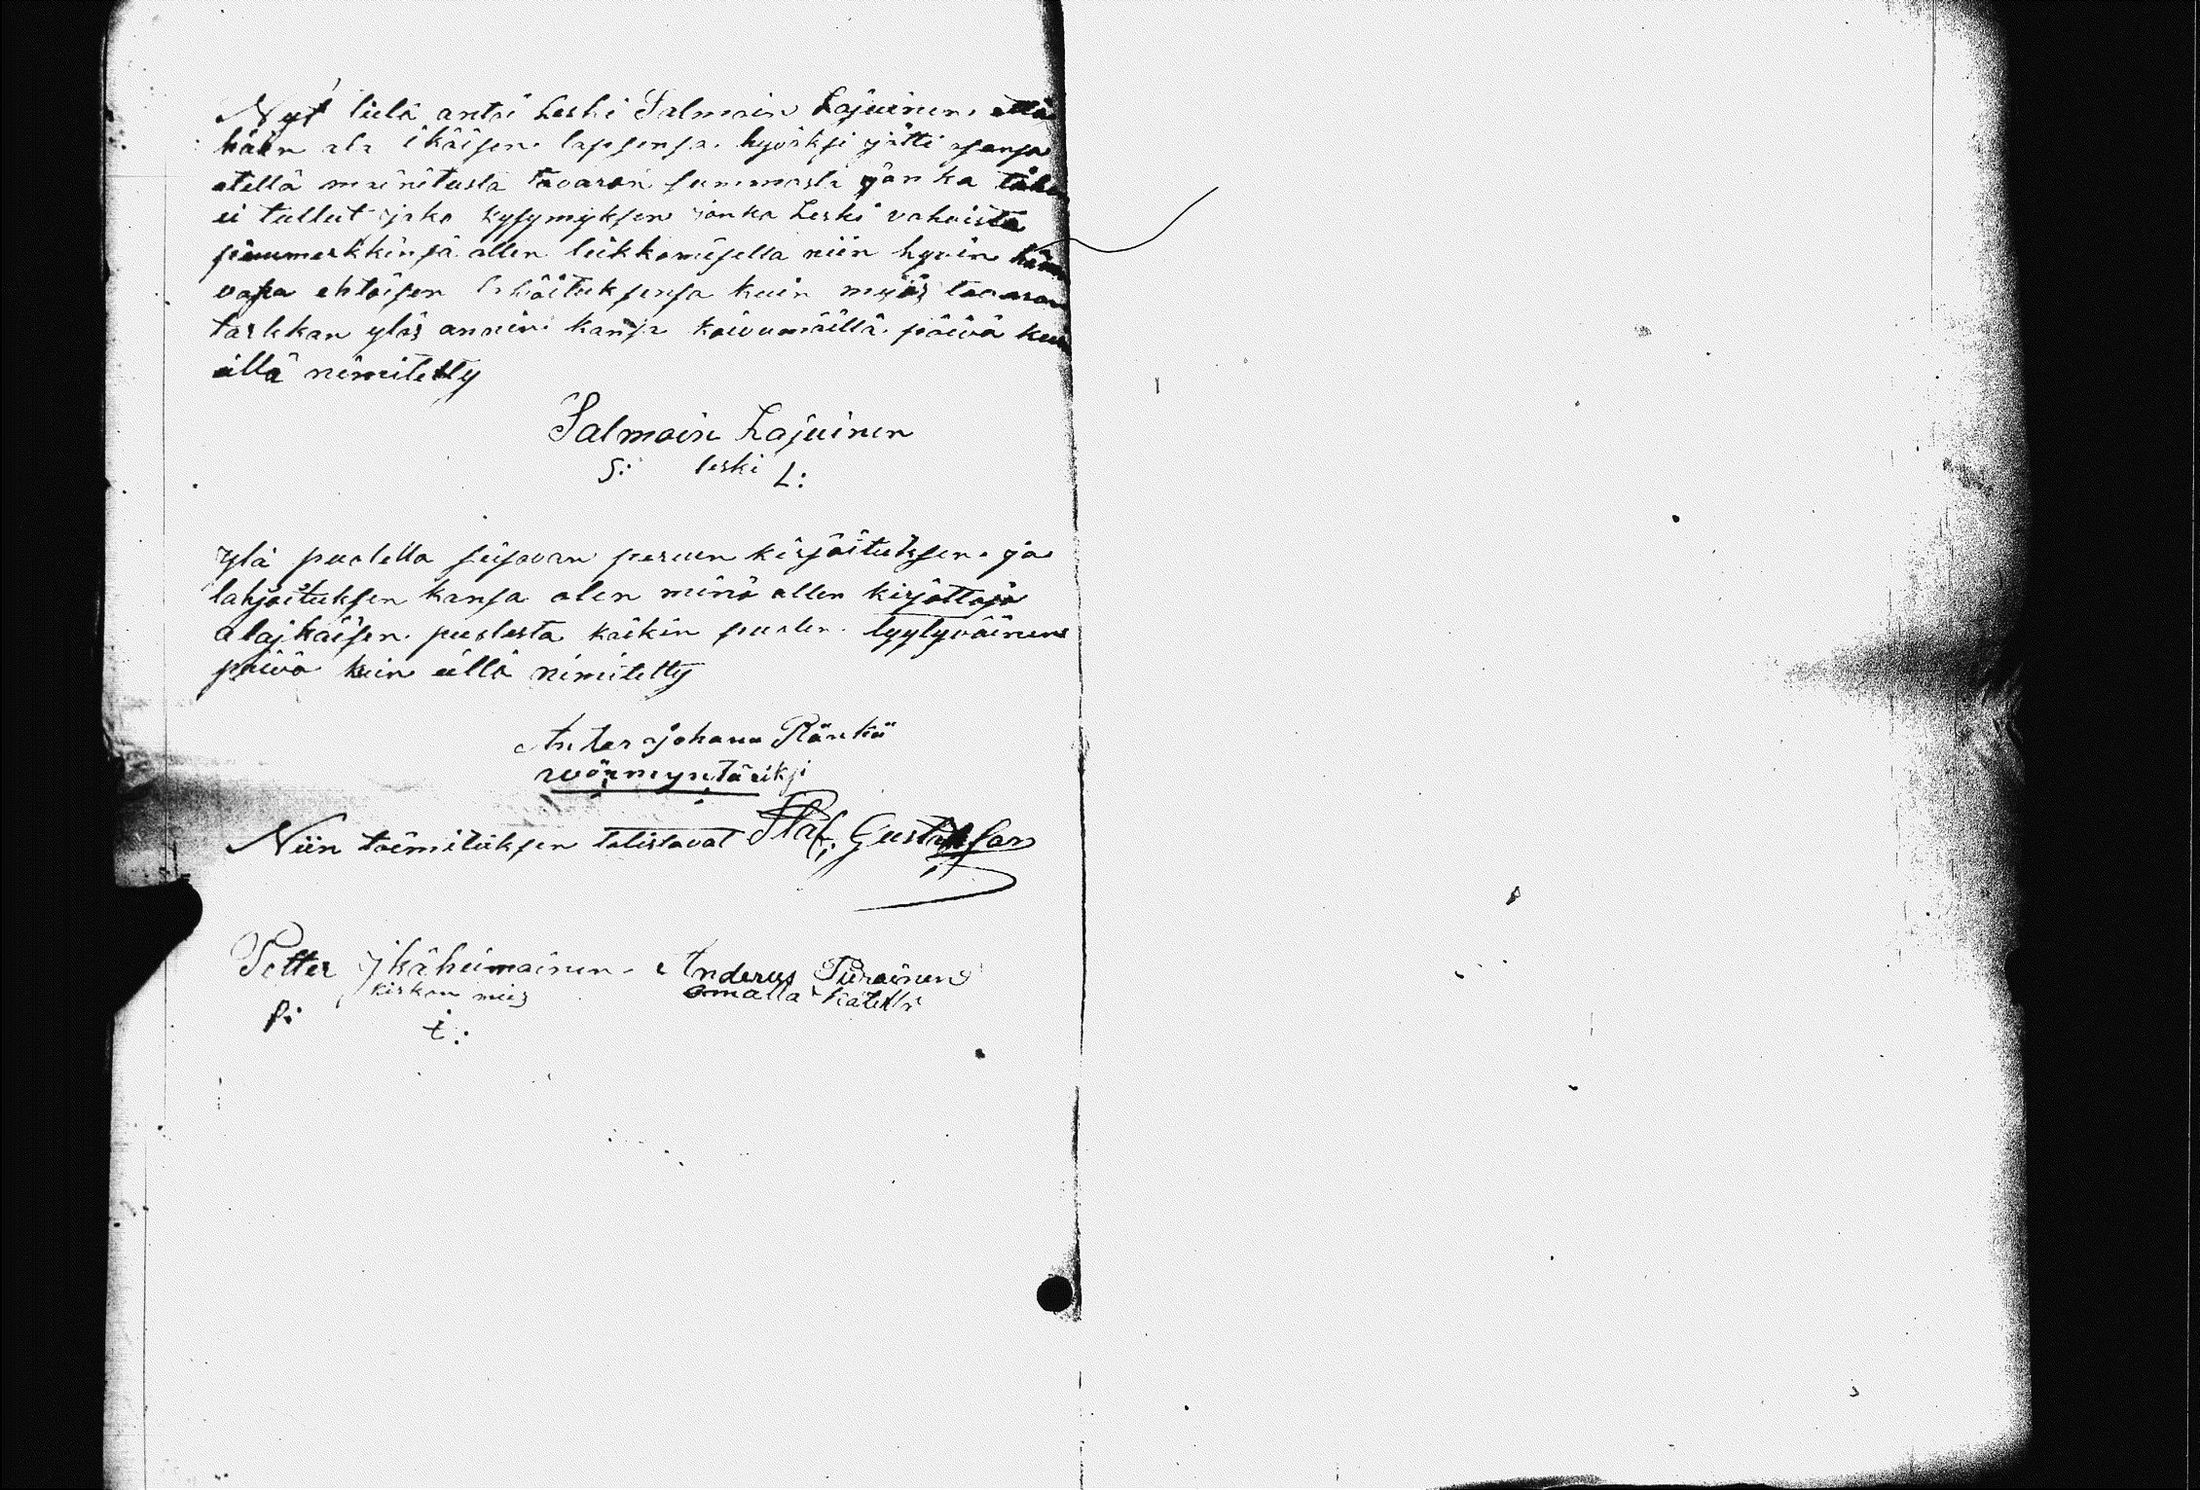 Nyt lielä antoi Leski Salmoin Lajuinen. että
hään ala ikäisen lapsensa hyväksi jätti
etellä mainitusta tavaran summasta jonka
ei tullut jako kysymyksen jonka Leski vahvista
puumerkkinsä allen leikkomisella niin hyvin
vapa ehtoisen lahjoituksensa kuin myös tavaran
tarkkan ylös annin kansa koivumäellä päivä kuin
ällä nimitetty
Salmoin Lajuinen
S: leski L:
Ylä puolella seisovan perun kirjoituksen ja
lahjoituksen kansa olen minä allen kirjottaja
alajkäisen puolesta kaikin puolen tyytyväinen
päivä kuin ällä nimitetty
Anter Johana Ränkä
wörmyntäriksi
Niin toimituksen totistavat Staf: Gustafson
Petter Jkäheimainen Anderus Piirainen
kirkon mies omalla kätellä
P: i: